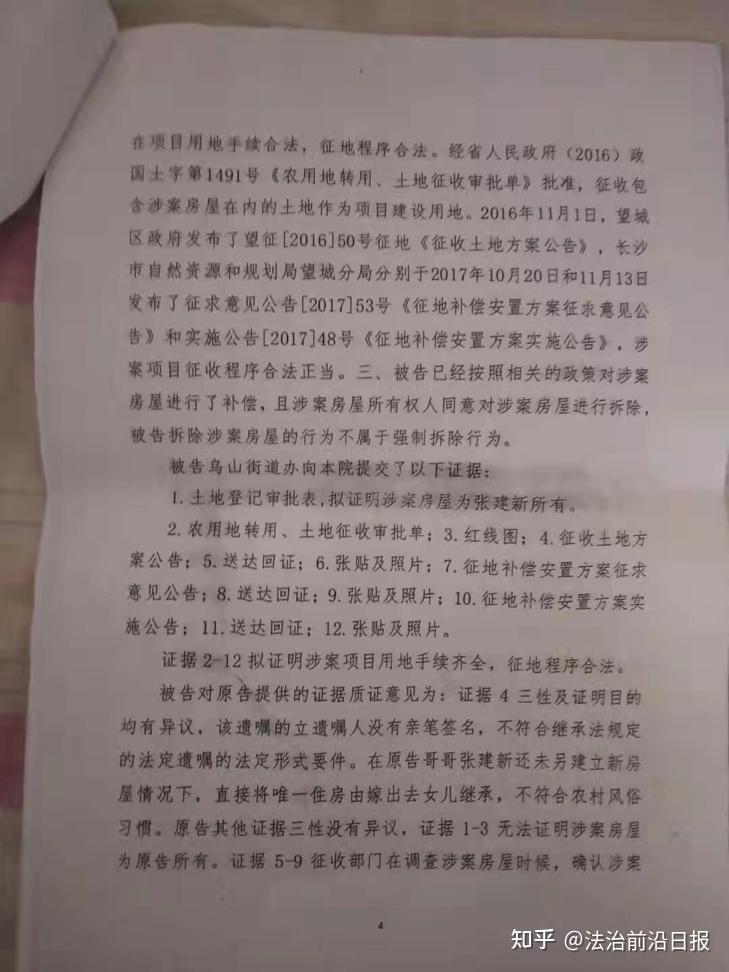 在项目用地手续合法，征地程序合法。经省人民政府（2016）政
国土字第1491号《农用地转用、土地征收审批单》批准，征收包
含涉案房屋在内的土地作为项目建设用地。2016年11月1日，望城
区政府发布了望征[2016]50号征地《征收土地方案公告》，长沙
市自然资源和规划局望城分局分别于2017年10月20日和11月13日
发布了征求意见公告[2017]53号《征地补偿安置方案征求意见公
告》和实施公告[2017]48号《征地补偿安置方案实施公告》，涉
案项目征收程序合法正当。三、被告已经按照相关的政策对涉案
房屋进行了补偿，且涉案房屋所有权人同意对涉案房屋进行拆除，
被告拆除涉案房屋的行为不属于强制拆除行为。
被告乌山街道办向本院提交了以下证据：
1.土地登记审批表，拟证明涉案房屋为张建新所有。
2.农用地转用、土地征收审批单；3.红线图；4.征收土地方
案公告；5.送达回证；6.张贴及照片；7.征地补偿安置方案征求
意见公告；8.送达回证；9.张贴及照片；10.征地补偿安置方案实
施公告；11.送达回证；12.张贴及照片。
证据2-12拟证明涉案项目用地手续齐全，征地程序合法。
被告对原告提供的证据质证意见为：证据4三性及证明目的
均有异议，该遗嘱的立遗嘱人没有亲笔签名，不符合继承法规定
的法定遗嘱的法定形式要件。在原告哥哥张建新还未另建立新房
屋情况下，直接将唯一住房由嫁出去女儿继承，不符合农村风俗
习惯。原告其他证据三性没有异议，证据1-3无法证明涉案房屋
为原告所有。证据5-9征收部门在调查涉案房屋时候，确认涉案
4
知乎 @法治前沿日报